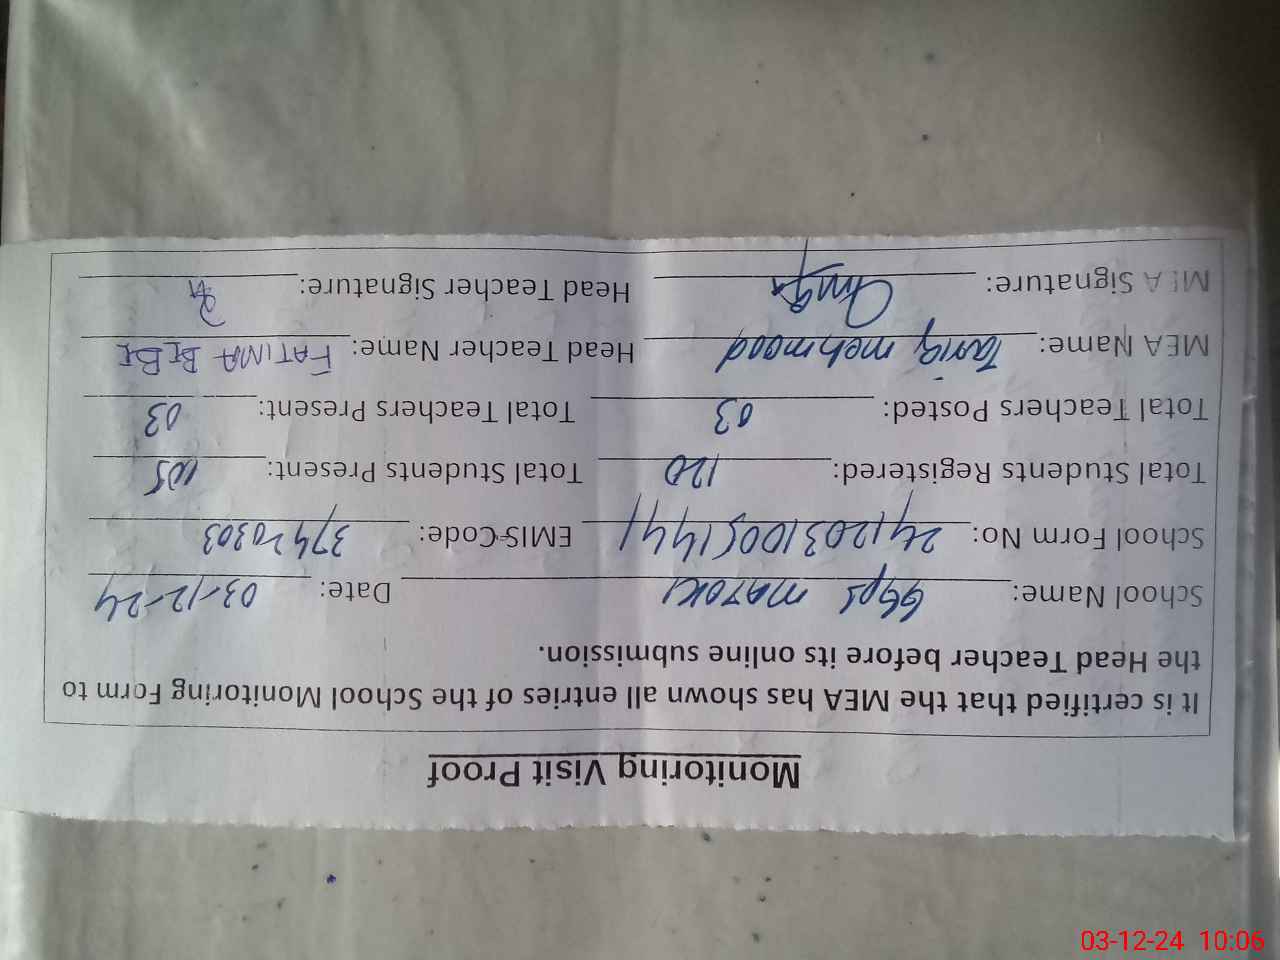 Monitoring Visit Proof
It is certified that the MEA has shown all entries of the School Monitoring Form to
the Head Teacher before its online submission.
School Name: GGPS MATOKI Date: 03-12-24
School Form No: 241203100514441 EMIS-Code: 37420303
Total Students Registered: 120 Total Students Present: 105
Total Teachers Posted: 03 Total Teachers Present: 03
MEA Name: Tariq mehmood Head Teacher Name: FATIMA BIBI
MEA Signature: Head Teacher Signature:
03-12-24 10:06